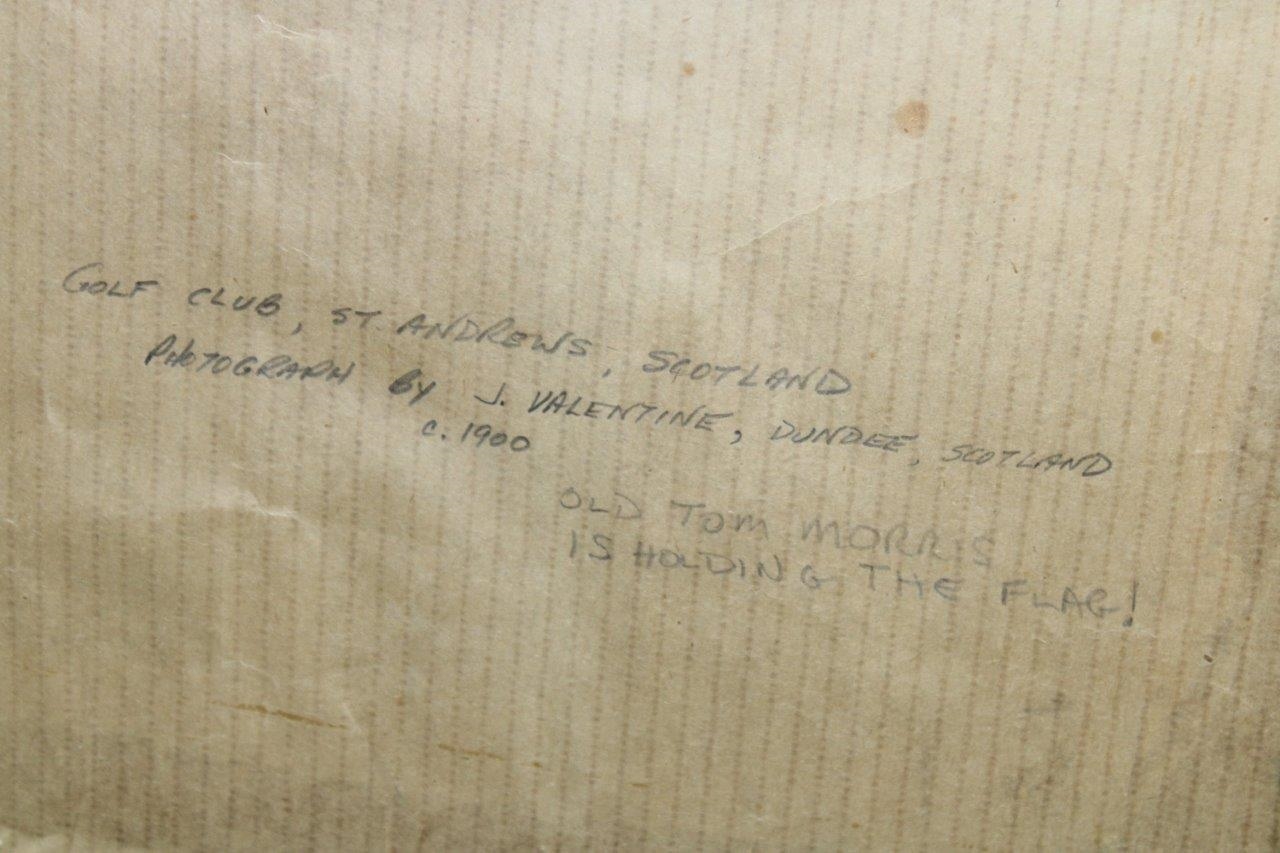 GOLF CLUB, ST ANDREWS, SCOTLAND
PHOTOGRAPH BY J. VALENTINE, DUNDEE, SCOTLAND
c. 1900
OLD TOM MORRIS
IS HOLDING THE FLAG!